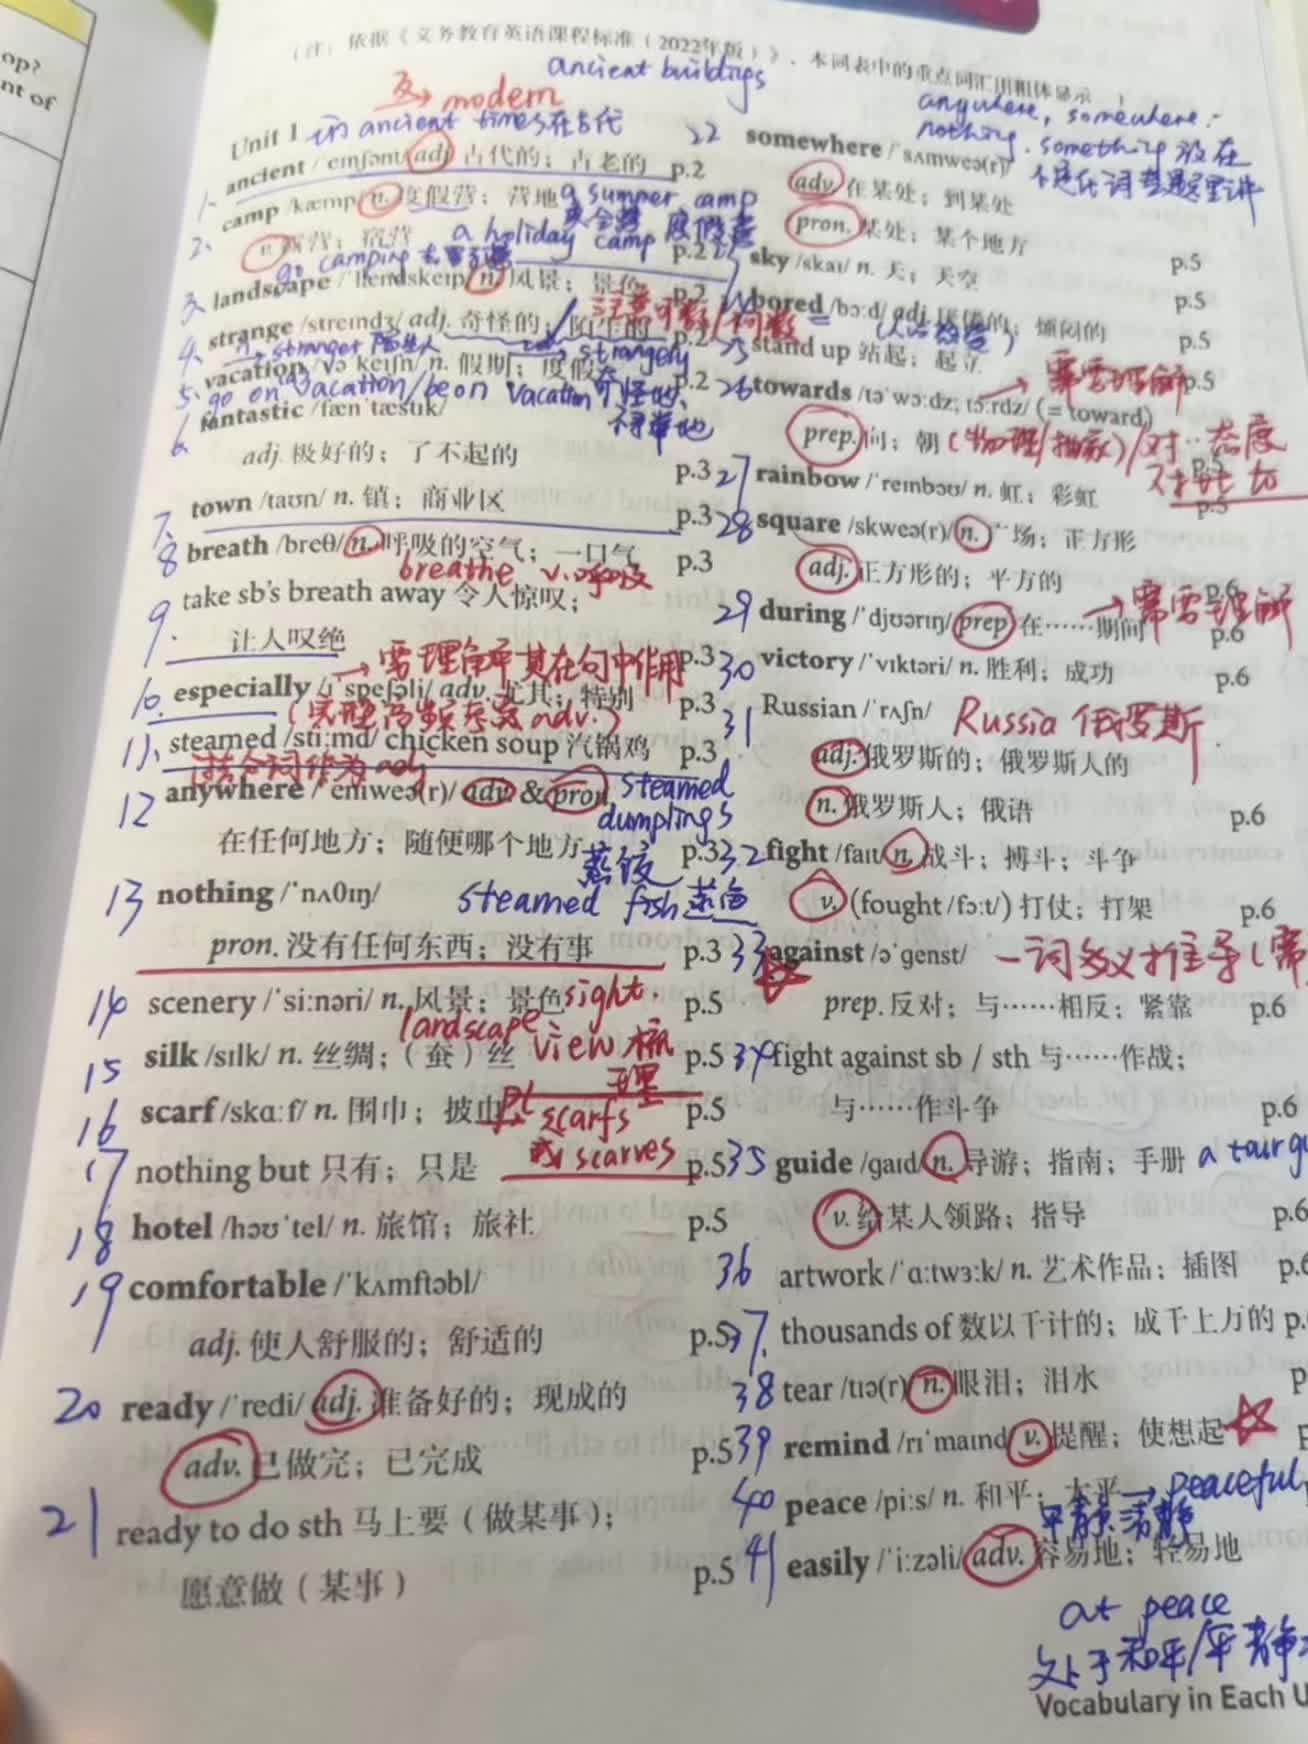 op?
nt of
（注：依据《义务教育英语课程标准（2022年版）》，本词表中的重点词汇用粗体显示。）
ancient buildings
反→ modern
Unit 1 in ancient times 在古代
1. ancient /ˈeɪnʃənt/ adj. 古代的；古老的 p.2
2. camp /kæmp/ n. 度假营；营地 a summer camp
夏令营
v. 露营；宿营 a holiday camp 度假营 p.2
go camping 去露营
3. landscape /ˈlændskeɪp/ n. 风景；景色 p.2
注意可数/词数
4. strange /streɪndʒ/ adj. 奇怪的；陌生的 p.2
n. → stranger 陌生人 → strangely
奇怪地、
不寻常地
5. vacation /vəˈkeɪʃn/ n. 假期；度假 p.2
go on vacation/be on vacation
6. fantastic /fænˈtæstɪk/
adj. 极好的；了不起的 p.3
7. town /taʊn/ n. 镇；商业区 p.3
8 breath /breθ/ n. 呼吸的空气；一口气 p.3
breathe v. 呼吸
9. take sb's breath away 令人惊叹；
让人叹绝 p.3
→ 需理解其在句中作用
10. especially /ɪˈspeʃəli/ adv. 尤其；特别 p.3
(完型高频考察adv.)
11. steamed /stiːmd/ chicken soup 汽锅鸡 p.3
12 anywhere /ˈeniweə(r)/ adv. & pron. steamed
dumplings
在任何地方；随便哪个地方 p.3
蒸饺
13 nothing /ˈnʌθɪŋ/ steamed fish 蒸鱼
pron. 没有任何东西；没有事 p.3
14 scenery /ˈsiːnəri/ n. 风景；景色 sight, p.5
landscape view 梳理
15 silk /sɪlk/ n. 丝绸；（蚕）丝 p.5
16 scarf /skɑːf/ n. 围巾；披巾 pl. scarfs p.5
或 scarves
17 nothing but 只有；只是 p.5
18 hotel /həʊˈtel/ n. 旅馆；旅社 p.5
19 comfortable /ˈkʌmftəbl/
adj. 使人舒服的；舒适的 p.5
20 ready /ˈredi/ adj. 准备好的；现成的
adv. 已做完；已完成 p.5
21 ready to do sth 马上要（做某事）；
愿意做（某事） p.5
anywhere, somewhere.
nothing. something 放在
不定代词专题里讲
22 somewhere /ˈsʌmweə(r)/
adv. 在某处；到某处
pron. 某处；某个地方 p.5
23 sky /skaɪ/ n. 天；天空 p.5
24 bored /bɔːd/ adj. 厌倦的；烦闷的 p.5
25 stand up 站起；起立 p.5
→ 需要理解
26 towards /təˈwɔːdz; tɔːrdz/ (= toward)
prep. 向；朝 (物理/抽象)/对··态度 p.5
对比 to
27 rainbow /ˈreɪnbəʊ/ n. 虹；彩虹 p.5
28 square /skweə(r)/ n. 广场；正方形
adj. 正方形的；平方的 p.6
29 during /ˈdjʊərɪŋ/ prep. 在……期间 p.6
→ 需要理解
30 victory /ˈvɪktəri/ n. 胜利；成功 p.6
31 Russian /ˈrʌʃn/ Russia 俄罗斯
adj. 俄罗斯的；俄罗斯人的
n. 俄罗斯人；俄语 p.6
32 fight /faɪt/ n. 战斗；搏斗；斗争
v. (fought /fɔːt/) 打仗；打架 p.6
33 against /əˈɡenst/ 一词多义推导(需
prep. 反对；与……相反；紧靠 p.6
34 fight against sb / sth 与……作战；
与……作斗争 p.6
35 guide /ɡaɪd/ n. 导游；指南；手册 a tour gu
v. 给某人领路；指导 p.6
36 artwork /ˈɑːtwɜːk/ n. 艺术作品；插图 p.6
37. thousands of 数以千计的；成千上万的 p.
38 tear /tɪə(r)/ n. 眼泪；泪水 p
39 remind /rɪˈmaɪnd/ v. 提醒；使想起 p
40 peace /piːs/ n. 和平；太平 → peaceful
平静、清静
41 easily /ˈiːzəli/ adv. 容易地；轻易地
at peace
处于和平/平静
Vocabulary in Each U